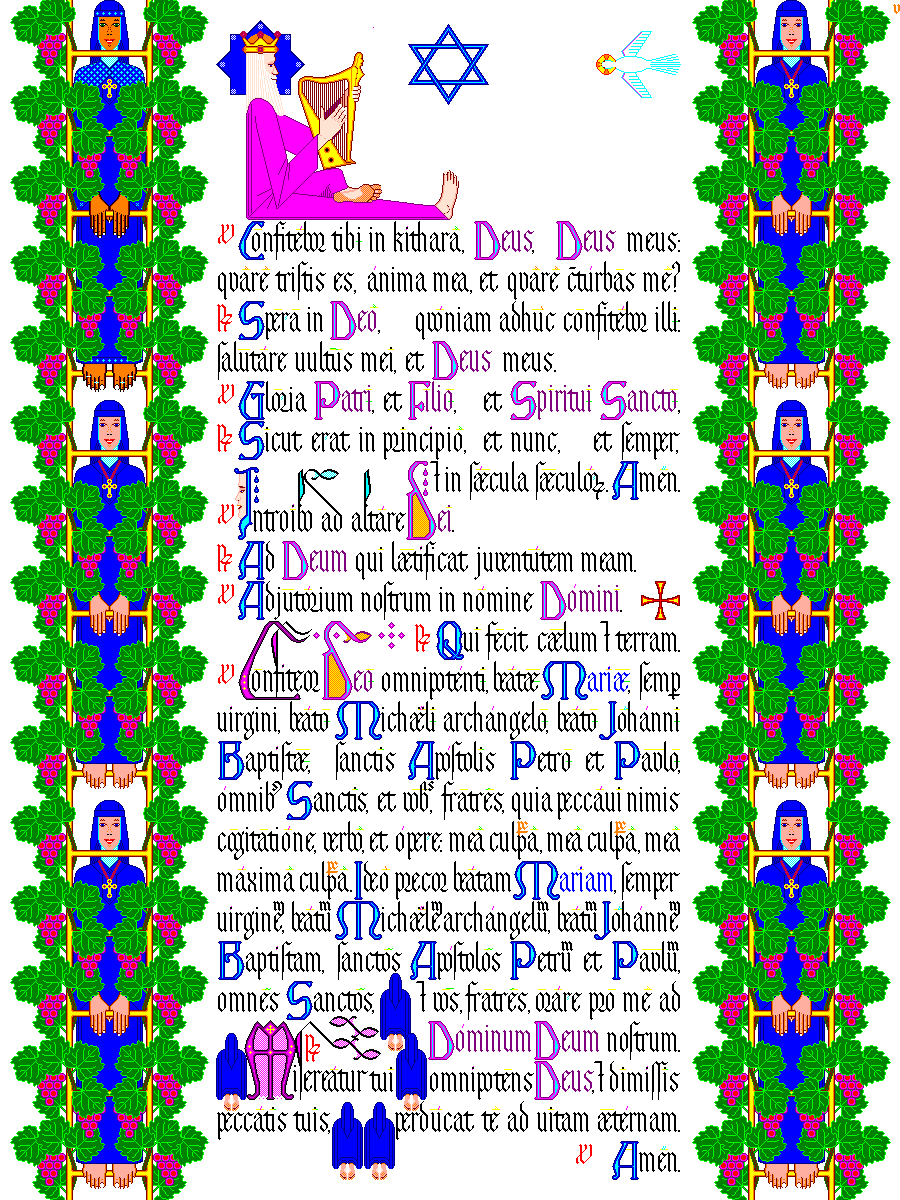 ℣ Confitébor tibi in kíthara, Deus, Deus meus:
quáre triſtis es, ánima mea, et quáre c̃túrbas me?
℟ Spera in Deo, quóniam adhuc confitébor illi:
ſalutáre uultus mei, et Deus meus.
℣ Glória Patri, et Fílio, et Spirítui Sancto,
℟ Sicut erat in princípio, et nunc, et ſemper,
⁊ in ſæcula ſæculóꝝ. Amen.
℣ Introíbo ad altáre Dei.
℟ Ad Deum qui lætíficat juventútem meam.
℣ Adjutórium noſtrum in nómine Dómini.
℟ Qui fecit cælum ⁊ terram.
℣ Confíteor Deo omnipoténti, beátæ Maríæ, ſemꝑ
uírgini, beáto Michaéli archángelo, beáto Johánni
Baptíſtæ, ſanctis Apóſtolis Petro et Paulo,
ómnibꝰ Sanctis, et vobˢ, fratres, quia peccáui nimis
cogitatióne, verbo, et ópere: mea culpa, mea culpa, mea
máxima culpa. Ideo precor beátam Maríam, ſemper
uírginē, beátū Michaélē archángelū, beátū Johánnē
Baptíſtam, ſanctos Apóſtolos Petrū et Paulū,
omnes Sanctos, ⁊ vos, fratres, oráre pro me ad
℟ Dóminum Deum noſtrum.
Miſereátur tui omnípotens Deus, ⁊ dimíſſis
peccátis tuis, perdúcat te ad uitam ætérnam.
℣ Amen.